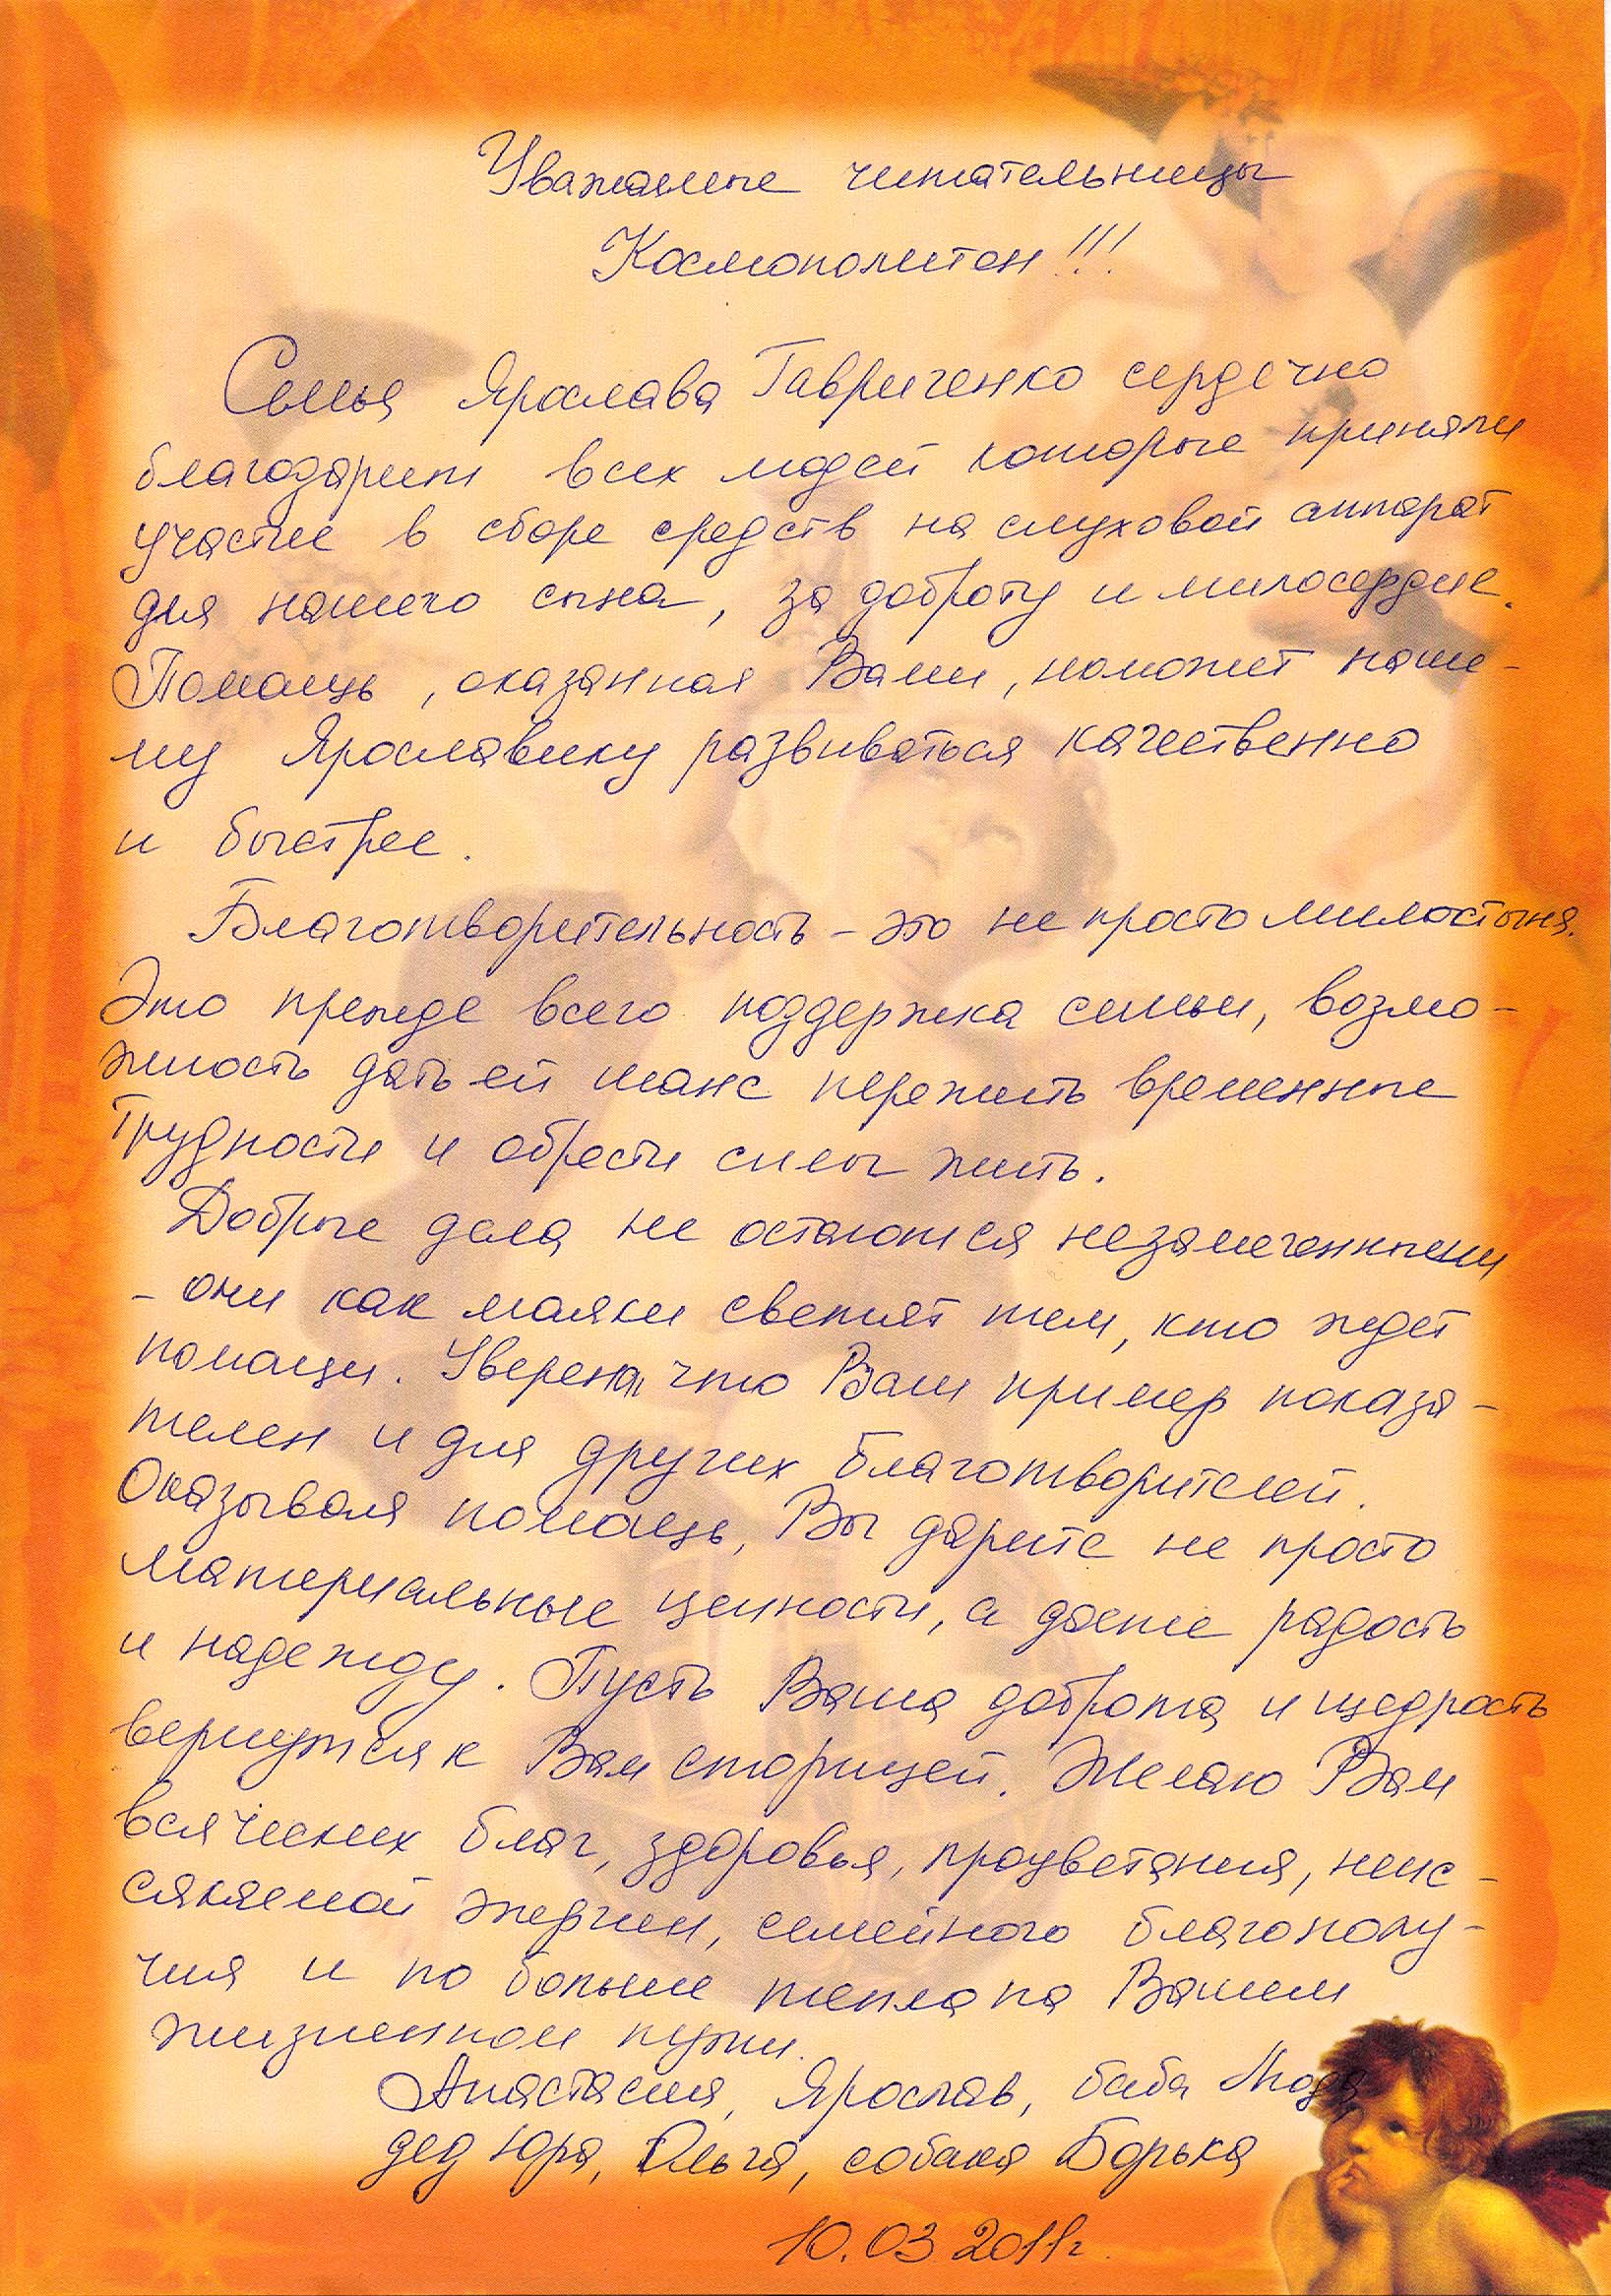 Уважаемые читательницы
Космополитен!!!
Семья Ярослава Гавриченко сердечно
благодарит всех людей которые приняли
участие в сборе средств на слуховой аппарат
для нашего сына, за доброту и милосердие.
Помощь, оказанная Вами, поможет наше-
му Ярославику развиваться качественно
и быстрее.
Благотворительность - это не просто милостыня.
Это прежде всего поддержка семьи, возмо-
жность дать ей шанс пережить временные
трудности и обрести силы жить.
Добрые дела не остаются незамеченными
- они как маяки светят тем, кто ждет
помощи. Уверена, что Ваш пример показа-
телен и для других благотворителей.
Оказывая помощь, Вы дарите не просто
материальные ценности, а даете радость
и надежду. Пусть Ваша доброта и щедрость
вернутся к Вам сторицей. Желаю Вам
всяческих благ, здоровья, процветания, неис-
сякаемой энергии, семейного благополу-
чия и по больше тепла на Вашем
жизненном пути.
Анастасия, Ярослав, баба Люда
дед Юра, Ольга, собака Борька
10.03 2011г.